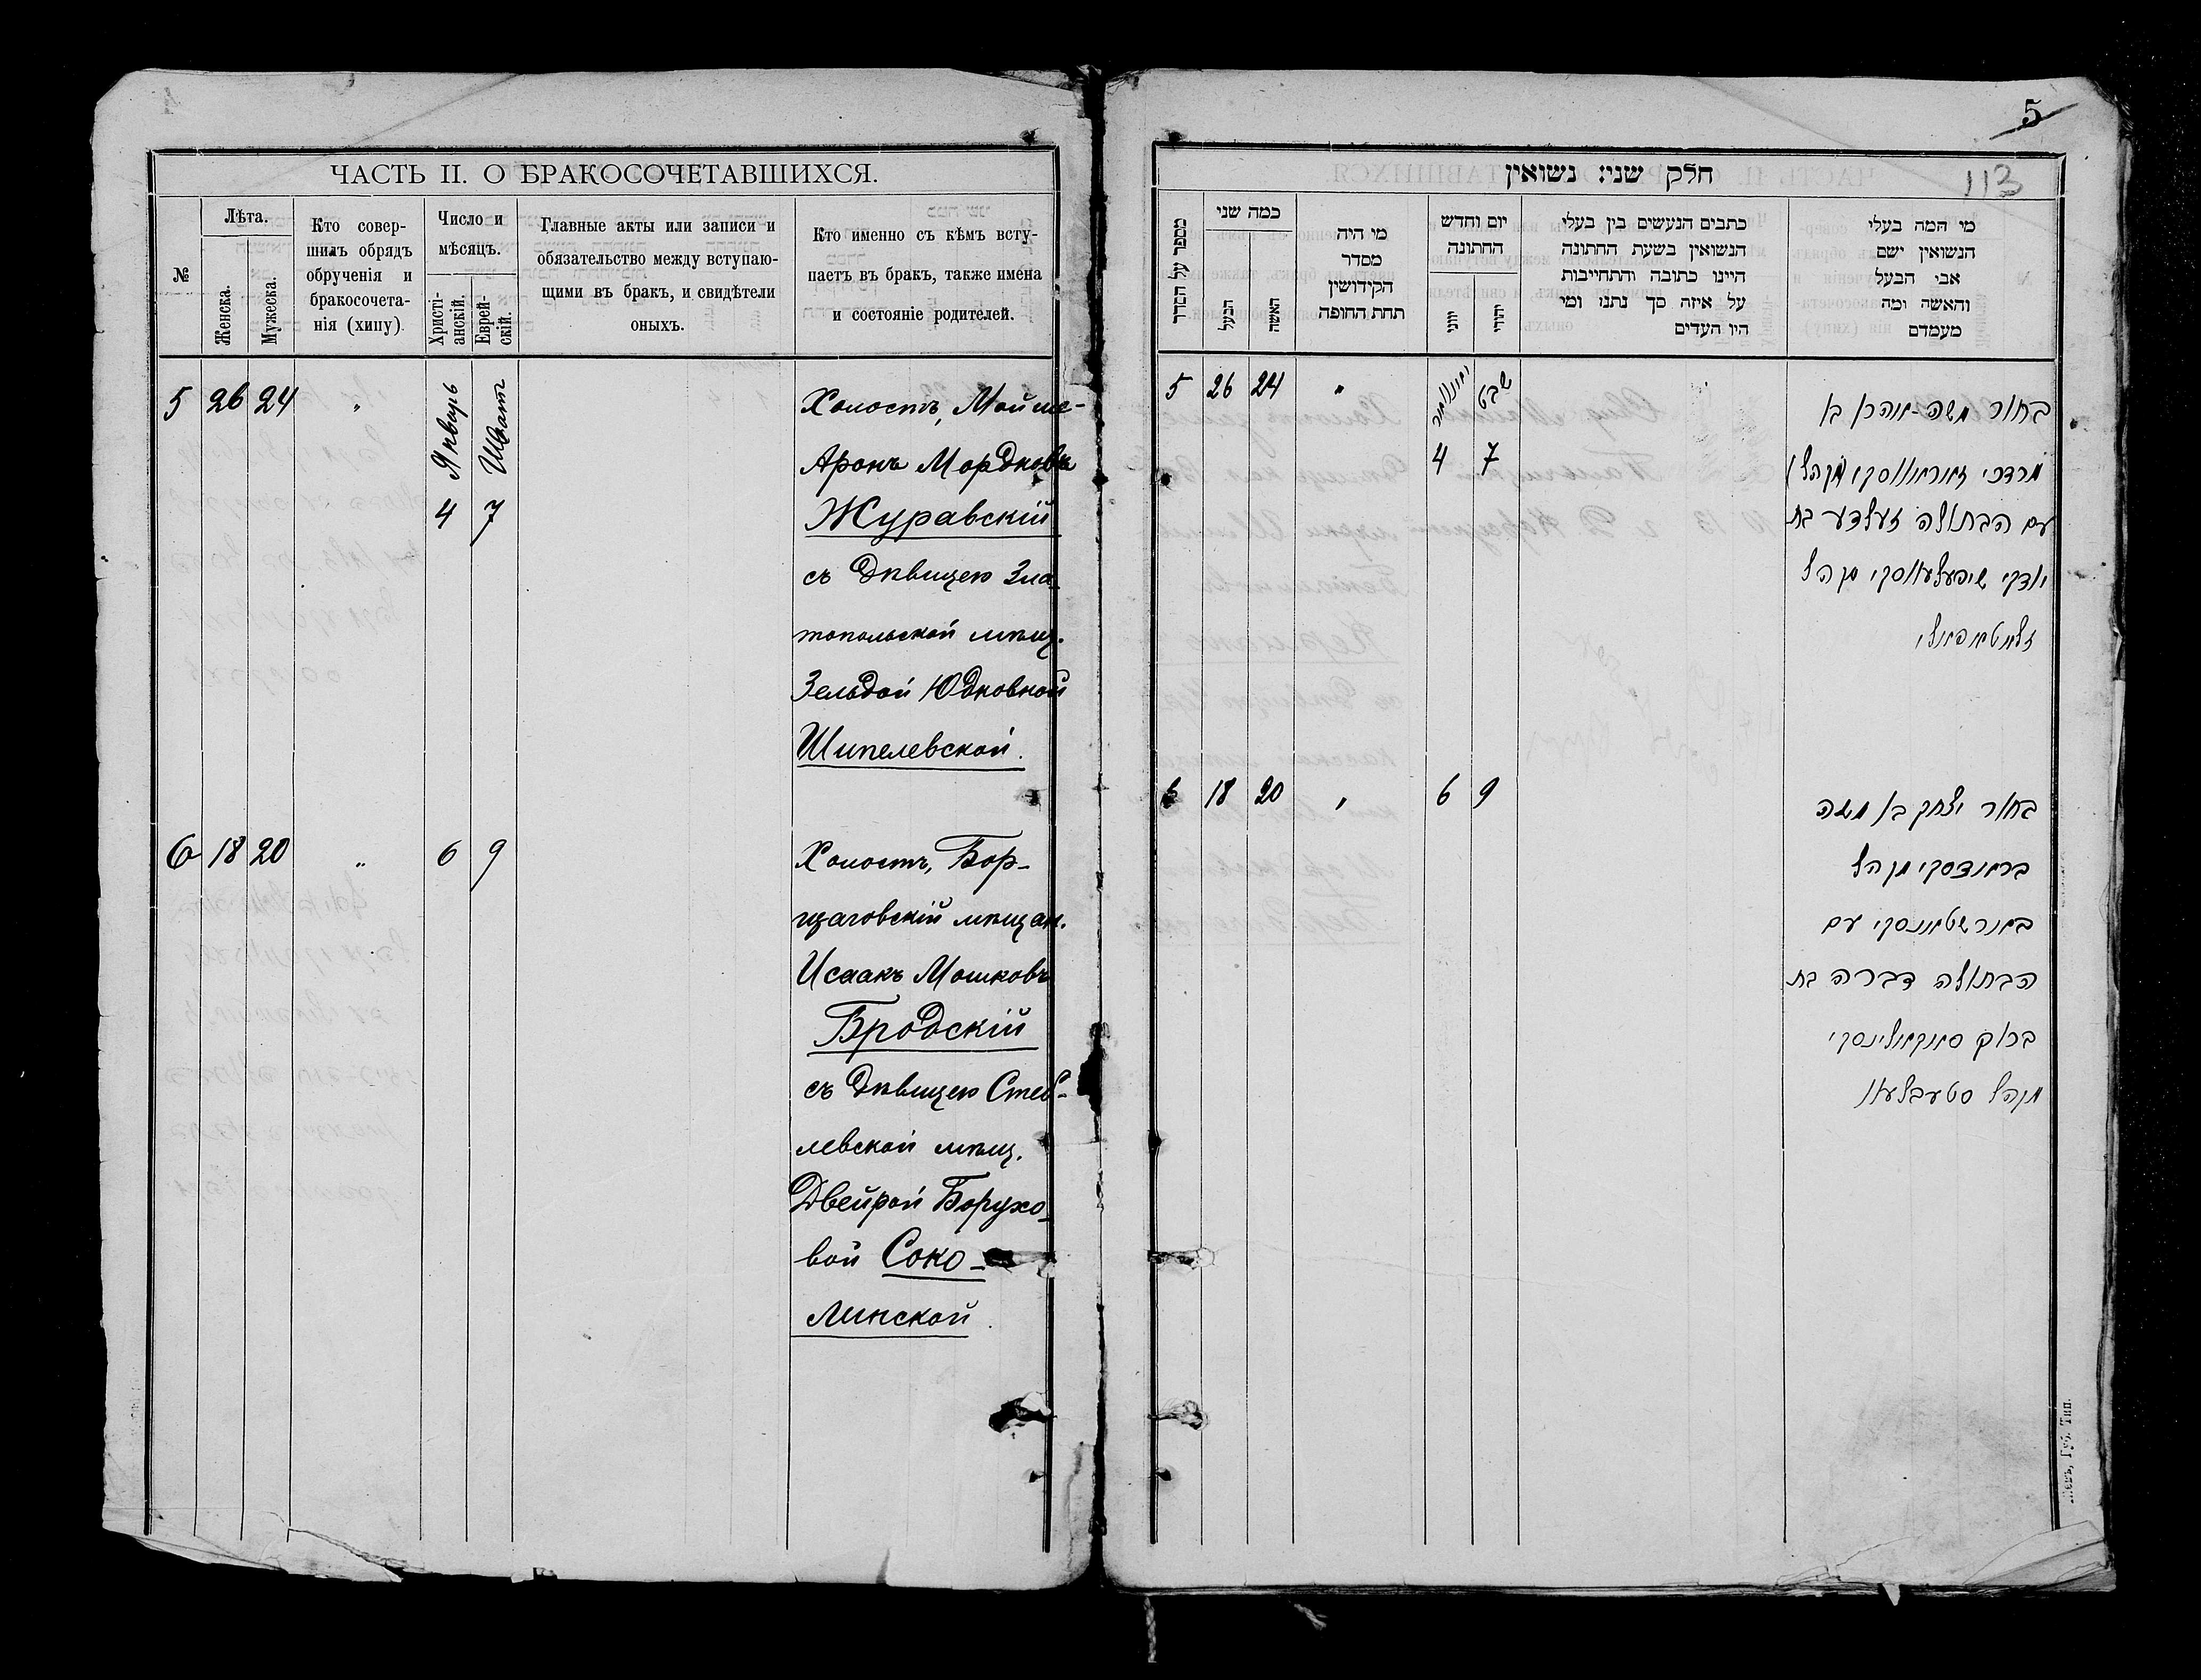 ЧАСТЬ II. О БРАКОСОЧЕТАВШИХСЯ.
№
Лѣта.
Женска.
Мужеска.
Кто совер-
шилъ обрядъ
обрученія и
бракосочета-
нія (хипу).
Число и
мѣсяцъ.
Христі-
анскій.
Еврей-
скій.
Главные акты или записи и
обязательство между вступаю-
щими въ бракъ, и свидѣтели
оныхъ.
Кто именно съ кѣмъ всту-
паетъ въ бракъ, также имена
и состояніе родителей.
5 26 24 "
Январь 4
Шватъ 7
Холостъ, Мойше-
Аронъ Мордковъ
Журавскій
съ дѣвицею Зла-
топольской мѣщ.
Зельдой Юдковной
Шипелевской.
6 18 20 " 6 9
Холостъ, Бор-
щаговскій мѣщан.
Исаакъ Мошковъ
Бродскій
съ дѣвицею Стеб-
левской мѣщ.
Двейрой Борухо-
вой Соко-
линской.
5
113
חלק שני: נשואין
מספר על הסדר
כמה שני
הבעל
האשה
מי היה
מסדר
הקידושין
תחת החופה
יום וחדש
החתונה
יווני
יהודי
כתבים הנעשים בין בעלי
הנשואין בשעת החתונה
היינו כתובה והתחייבות
על איזה סך נתנו ומי
היו העדים
מי המה בעלי
הנשואין ושם
אבי הבעל
והאשה ומה
מעמדם
5 26 24 "
יאנוואר 4
שבט 7
בחור משה-אהרן בן
מרדכי זוראוואסקי
עם הבתולה זעלדע בת
יודקי שיפעלעווסקי מק הל
זלאטאפאלי
6 18 20 " 6 9
בחור יצחק בן משה
בראדסקי מק הל
עם
הבתולה דברה בת
ברוך סאקאלינסקי
מקהל סטעבלעוו
Губ. Тип.